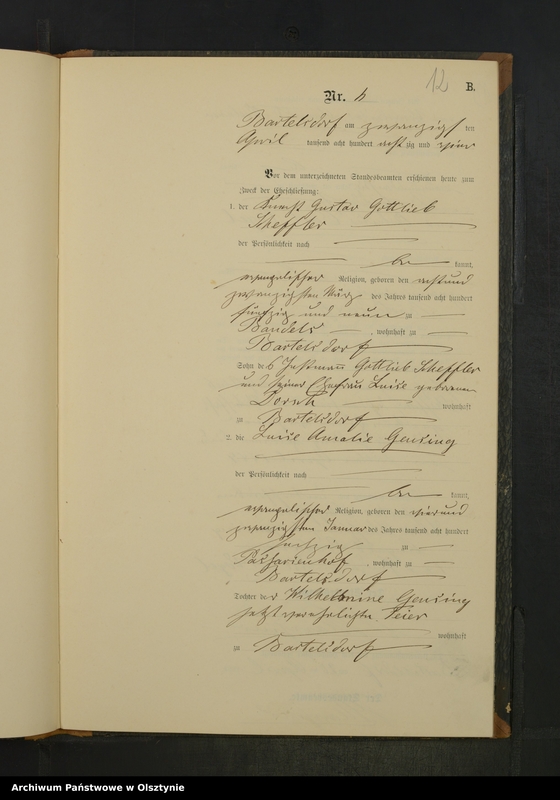 12
B.
Nr. 4
Bartelsdorf am zwanzigs ten
April tausend acht hundert acht zig und vier
Vor dem unterzeichneten Standesbeamten erschienen heute zum
Zweck der Eheschließung:
1. der Knecht Gustav Gottlieb
Scheffler
der Persönlichkeit nach
be kannt,
evangelischer Religion, geboren den acht und
zwanzigsten März des Jahres tausend acht hundert
fünfzig und neun zu
Bandels, wohnhaft zu
Bartelsdorf
Sohn des Instmann Gottlieb Scheffler
und seiner Ehefrau Luise geborene
wohnhaft
zu Bartelsdorf
2. die Luise Amalie Gensing
der Persönlichkeit nach
be kannt,
evangelischer Religion, geboren den vier und
zwanzigsten Januar des Jahres tausend acht hundert
sechzig zu
wohnhaft zu
Bartelsdorf
Tochter der Wilhelmine Gensing
jetzt verehelichte Feier
wohnhaft
zu Bartelsdorf
Archiwum Państwowe w Olsztynie